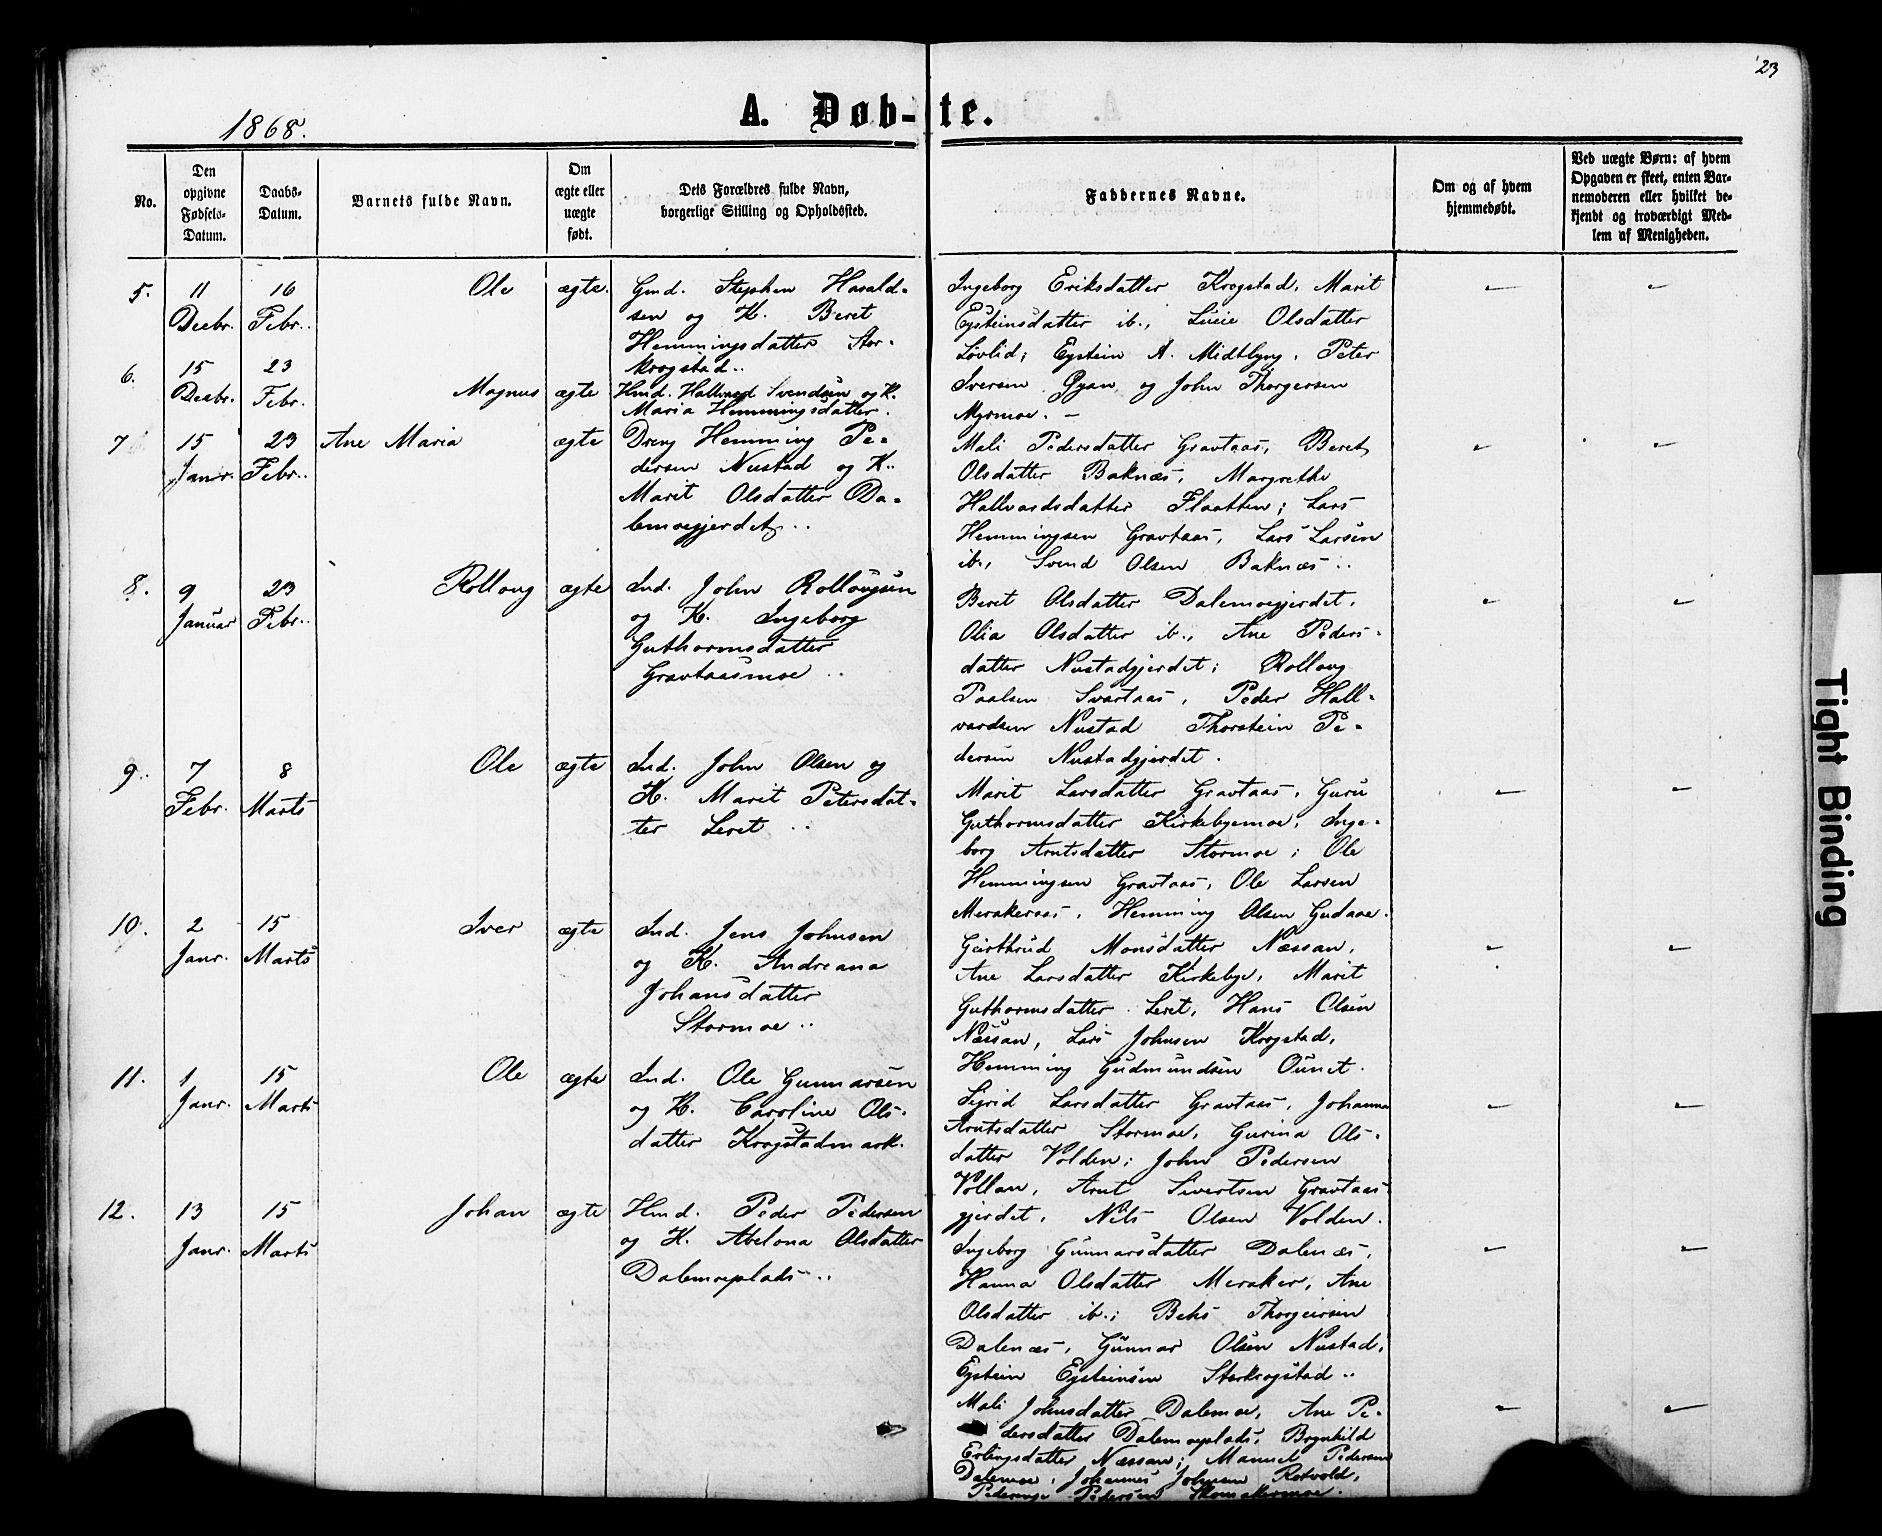 23
1868.
A. Døb-te.
No.
Den opgivne Fødsels-Datum.
Daabs-Datum.
Barnets fulde Navn.
Om ægte eller uægte født.
Dets Forældres fulde Navn, borgerlige Stilling og Opholdssted.
Faddernes Navne.
Om og af hvem hjemmedøbt.
Ved uægte Børn: af hvem Opgaven er skeet, enten Barnemoderen eller hvilket bekjendt og troværdigt Medlem af Menigheden.
5. 11 Decbr. 16 Febr. Ole ægte. Gmd. Stephen Harald-
sen og K. Beret
Hemmingsdatter Stor-
krogstad..
6. 15 Decbr. 23 Febr. Magnus ægte Hmd. Hallvard Svendsen og K.
Maria Hemmingsdatter.
7 15 Janr. 23 Febr. Ane Maria ægte Dreng Hemming Pe-
dersen Nustad og K.
Marit Olsdatter Da-
lemoegjerdet..
8. 9 Januar 23 Febr. Rollaug ægte Ind. John Rollaugsen
og K. Ingeborg
Guthormsdatter
Gravtaasmoe..
9.. 7 Febr. 8 Marts Ole ægte Ind. John Olsen og
K. Marit Petersdat-
ter Leret..
10. 2 Janr. 15 Marts Iver ægte Ind. Jens Johnsen
og K. Andreana
Johansdatter
Stormoe..
11. 1 Janr. 15 Marts Ole ægte Ind. Ole Gunnarsen
og K. Caroline Ols-
datter Krogstadmark.
12. 13 Janr. 15 Marts Johan ægte Hmd. Peder Pedersen
og K. Abelona Olsdatter
Dalemoeplads..
Ingeborg Eriksdatter Krogstad, Marit
Eysteinsdatter ib., Lucie Olsdatter
Løvlid; Eystein A. Midtbyng, Peter
Iversen Gyan og John Thorgersen
Myrmoe. -
Mali Pedersdatter Gravtaas, Beret
Olsdatter Baknæs, Margrethe
Hallvardsdatter Flaatten; Lars
Hemmingsen Gravtaas, Lars Larsen
ib., Svend Olsen Baknæs..
Beret Olsdatter Dalemoegjerdet,
Olia Olsdatter ib., Ane Peders-
datter Nustadgjerdet; Rollaug
Paalsen Svartaas, Peder Hall-
vardsen Nustad Thorstein Pe-
dersen Nustadgjerdet.
Marit Larsdatter Gravtaas, Guru
Guthormsdatter Kirkebyemoe, Inge-
borg Arntsdatter Stormoe; Ole
Hemmingsen Gravtaas, Ole Larsen
Merakeraas, Hemming Olsen Gudaae.
Gjertrud Monsdatter Næssan,
Ane Larsdatter Kirkebye, Marit
Guthormsdatter Leret, Hans Olsen
Næssan, Lars Johnsen Krogstad,
Hemming Gudmundsen Ounet.
Sigrid Larsdatter Gravtaas, Johanna
Arntsdatter Stormoe, Gurina Ols-
datter Volden; John Pedersen
Vollan, Arnt Sivertsen Gravtaas-
gjerdet, Nils Olsen Volden.
Ingeborg Gunnarsdatter Dalenæs,
Hanna Olsdatter Meraker, Ane
Olsdatter ib.; Thorgeirsen
Dalenæs, Gunnar Olsen Nustad,
Eystein Eysteinsen Storkrogstad..
Mali Johnsdatter Dalemoe, Ane Pe-
dersdatter Dalemoeplads, Brynhild
Erlingsdatter Næssan; Manuel Pedersen
Dalemoe, Johannes Johnsen Rotvold,
Pedersen
Tight Binding